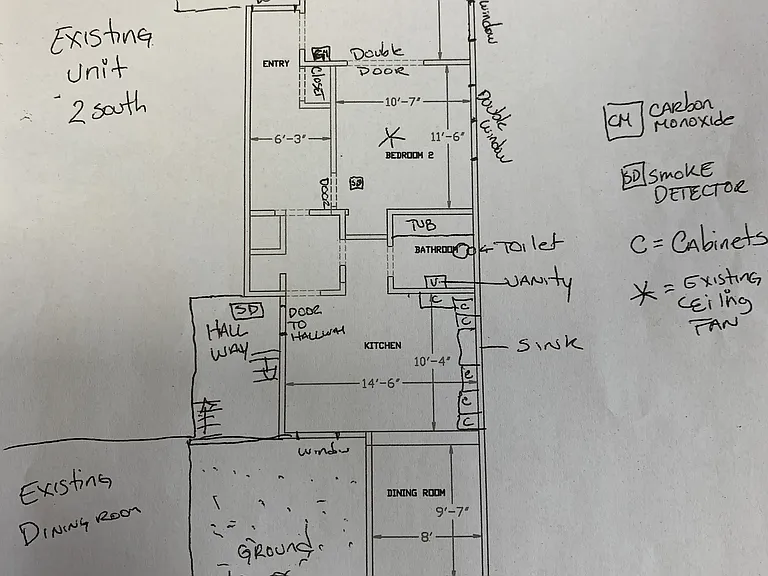 Existing
unit
2 south
ENTRY
CM
CLOSET
Double
DOOR
window
Double
window
10'-7"
6'-3"
11'-6"
BEDROOM 2
DOOR
SD
TUB
BATHROOM
TOILET
V
VANITY
CM CARBON
MONOXIDE
SD SMOKE
DETECTOR
C = CABINETS
= EXISTING
CEILING
FAN
SD
HALL
WAY
DOOR
TO
HALLWAY
KITCHEN
C
C
C
SINK
10'-4"
14'-6"
C
C
C
window
Existing
DINING ROOM
DINING ROOM
9'-7"
8'
GROUND